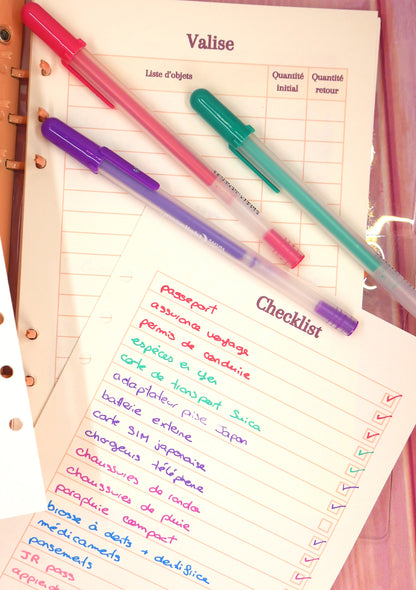 Valise
Liste d'objets
Quantité initial
Quantité retour
Checklist
passeport
assurance voyage
permis de conduire
espèces en yen
carte de transport Suica
adaptateur prise Japon
batterie externe
carte SIM japonaise
chargeurs téléphone
chaussures de rando
chaussures de pluie
parapluie compact
brosse à dents + dentifrice
médicaments
pansements
JR pass